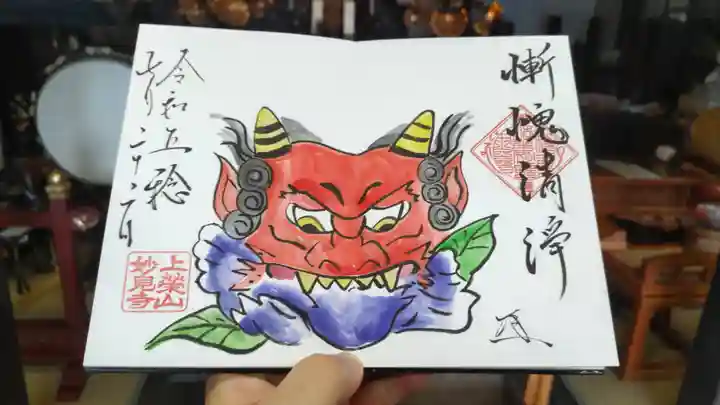 慚愧清浄
令和五稔
七月二十六日
上榮山
妙見寺